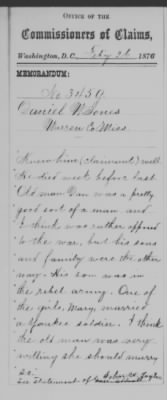 OFFICE OF THE
Commissioners of Claims,
Washington, D.C. Feby 26 1876
MEMORANDUM:
No 3459
Daniel N Jones
Warren Co Miss.
Know him (claimant) well
He died week before last
Old man Dan was a pretty
good sort of a man and
I think was rather opposed
to the war, but his sons
and family were the other
way. His son was in
the rebel army. One of
the girls, Mary, married
a Yankee soldier. I think
the old man was very
willing she should marry
so.
See Statement of